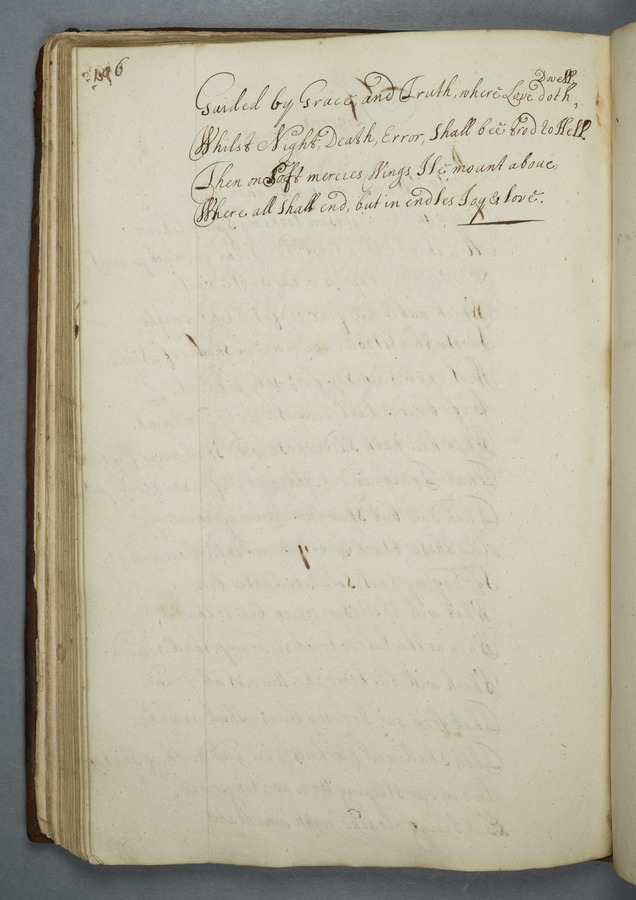 Guided by Grace, and Truth, where Love doth Dwell,
Whilst Night, Death, Error, shall bee trod to Hell
Then on Soft mercies Wings Ile mount above,
Where all shall end, but in endles Joy & love.